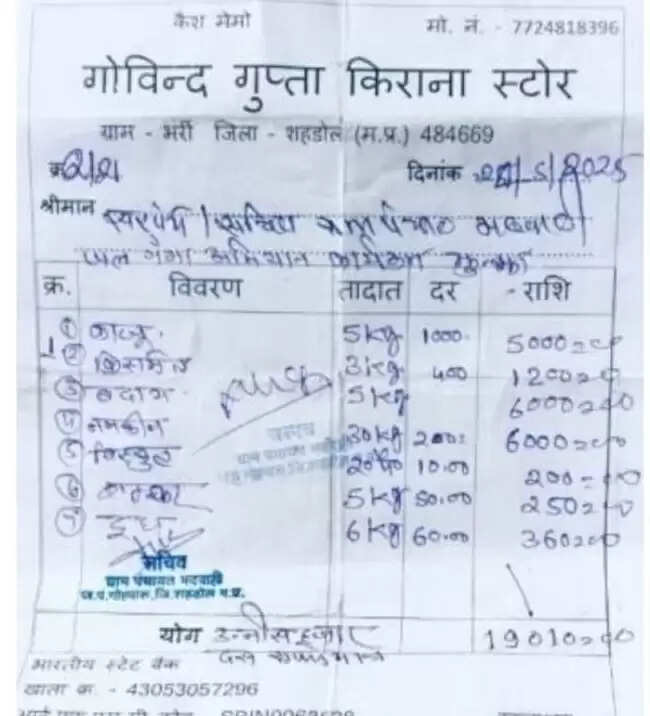 कैश मेमो मो. नं. - 7724818396
गोविन्द गुप्ता किराना स्टोर
ग्राम - भर्री जिला - शहडोल (म.प्र.) 484669
क्र. दिनांक
श्रीमान सरपंच / सचिव ग्राम पंचायत भदवाही
जल गंगा अभियान कार्यक्रम
क्र. विवरण तादात दर राशि
1 ① काजू 5 kg 1000 5000=00
② किसमिस 3 kg 400 1200=00
③ बदाम 5 kg 6000=00
④ नमकीन 30 kg 200 6000=00
⑤ बिस्कुट 10.00 200=00
⑥ शक्कर 5 kg 50.00 250=00
⑦ दूध 6 kg 60.00 360=00
सरपंच
ग्राम पंचायत भदवाही
सचिव
ग्राम पंचायत भदवाही
योग उन्नीस हजार 19010=00
दस रूपये मात्र
भारतीय स्टेट बैंक
खाता क. - 43053057296